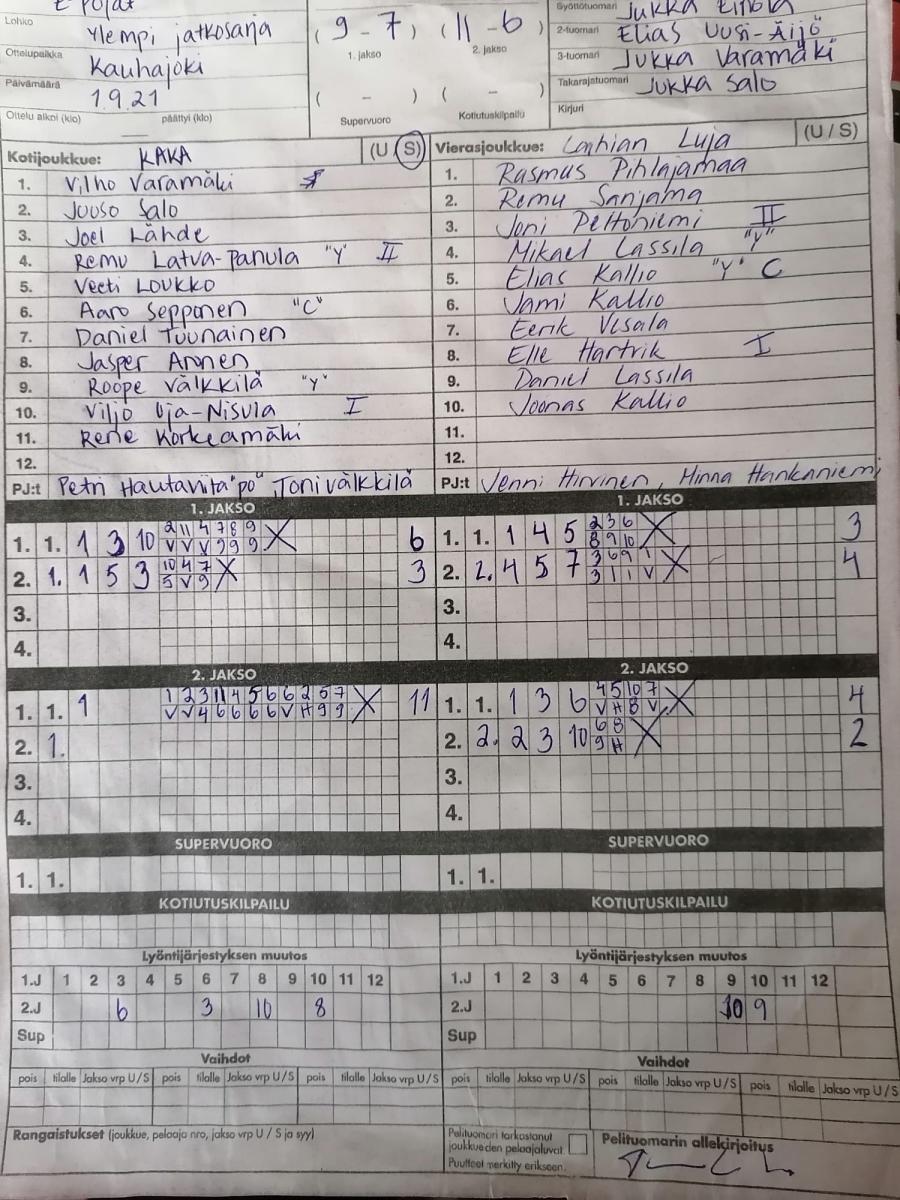 E pojat
Lohko
Ylempi jatkosarja
Ottelupaikka
Kauhajoki
Päivämäärä
1.9.21
Ottelu alkoi (klo) päättyi (klo)
(9-7) (11-6)
1. jakso 2. jakso
( - ) ( - )
Supervuoro Kotiutuskilpailu
Syöttötuomari Jukka
2-tuomari Elias Uusi-Äijö
3-tuomari Jukka Varamäki
Takarajatuomari Jukka Salo
Kirjuri
Kotijoukkue: KAKA (U S)
1. Vilho Varamäki
2. Juuso Salo
3. Joel Lähde
4. Remu Latva-panula "Y" II
5. Veeti Loukko
6. Aaro Sepponen "C"
7. Daniel Tuunainen
8. Jasper Aronen
9. Roope Välkkilä "Y"
10. Viljo Uja-Nisula I
11. Rene Korkeamäki
12.
PJ:t Petri Hautaviita "po", Toni välkkilä
Vierasjoukkue: Laihian Luja (U / S)
1. Rasmus Pihlajamaa
2. Remu Sanjama
3. Joni Peltoniemi II
4. Mikael Lassila "Y"
5. Elias Kallio "Y" C
6. Jami Kallio
7. Eerik Visala
8. Elle Hartvik I
9. Daniel Lassila
10. Joonas Kallio
11.
12.
PJ:t Jenni Hirvinen, Minna Hankaniemi
1. JAKSO
1. 1. 1 3 10 2 11 4 7 8 9 X 6
V V V 9 9 9
2. 1. 1 5 3 10 4 7 X 3
5 V 9
3.
4.
1. JAKSO
1. 1. 1 4 5 2 3 6 X 3
8 9 10
2. 2. 4 5 7 3 6 9 1 X 4
3 1 1 V
3.
4.
2. JAKSO
1. 1. 1 1 2 3 11 4 5 6 6 2 5 7 X 11
V V 4 6 6 6 6 V H 9 9
2. 1.
3.
4.
2. JAKSO
1. 1. 1 3 6 4 5 10 7 X 4
V H 8 V
2. 2. 2 3 10 6 8 X 2
9 H
3.
4.
SUPERVUORO
1. 1.
SUPERVUORO
1. 1.
KOTIUTUSKILPAILU
KOTIUTUSKILPAILU
Lyöntijärjestyksen muutos
1.J 1 2 3 4 5 6 7 8 9 10 11 12
2.J 6 3 10 8
Sup
Lyöntijärjestyksen muutos
1.J 1 2 3 4 5 6 7 8 9 10 11 12
2.J 10 9
Sup
Vaihdot
pois tilalle Jakso vrp U/S pois tilalle Jakso vrp U/S pois tilalle Jakso vrp U/S
Vaihdot
pois tilalle Jakso vrp U/S pois tilalle Jakso vrp U/S pois tilalle Jakso vrp U/S
Rangaistukset (joukkue, pelaaja nro, jakso vrp U / S ja syy)
Pelituomari tarkastanut
joukkueiden pelaajaluvat.
Puutteet merkitty erikseen.
Pelituomarin allekirjoitus